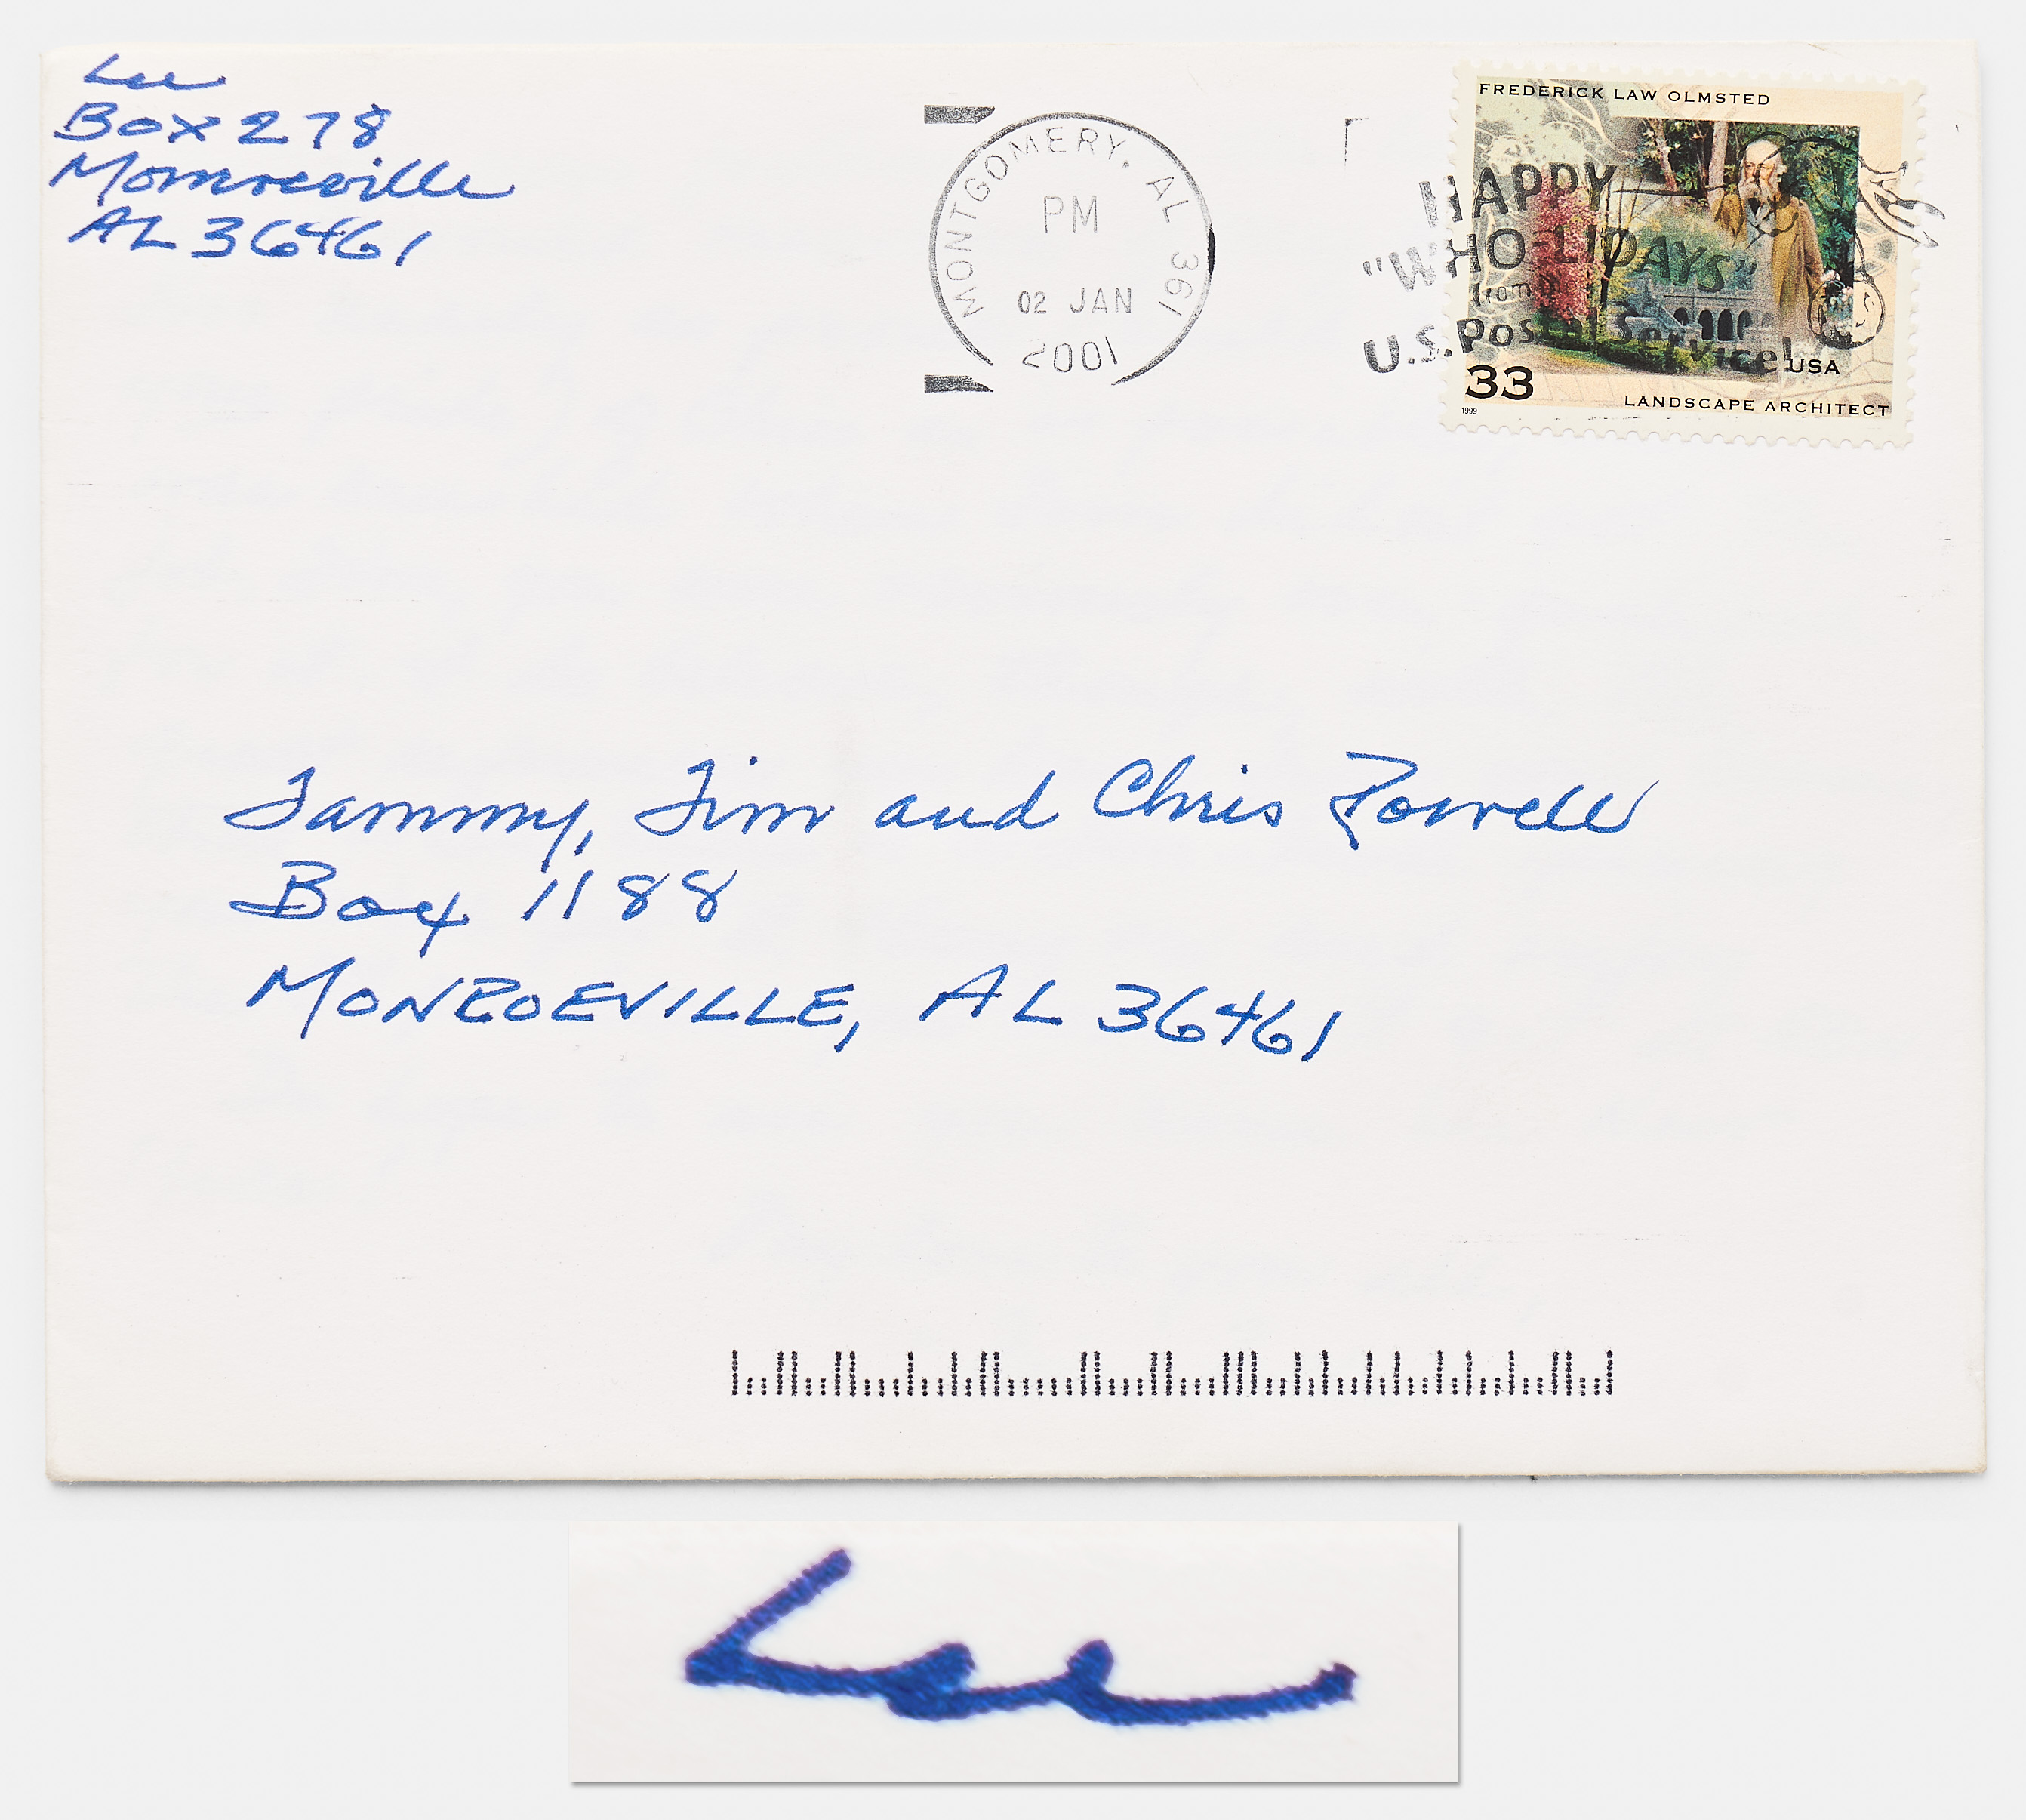 Lee
Box 278
Monroeville
AL 36461
MONTGOMERY, AL 361
PM
02 JAN
2001
FREDERICK LAW OLMSTED
HAPPY
"WHO-LIDAYS"
from
U.S. Postal Service!
USA
33
1999
LANDSCAPE ARCHITECT
Tammy, Tim and Chris Powell
Box 1188
MONROEVILLE, AL 36461
Lee